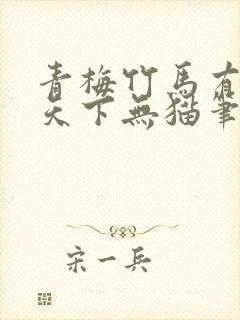 青梅竹馬有
天下無貓筆
宋一兵